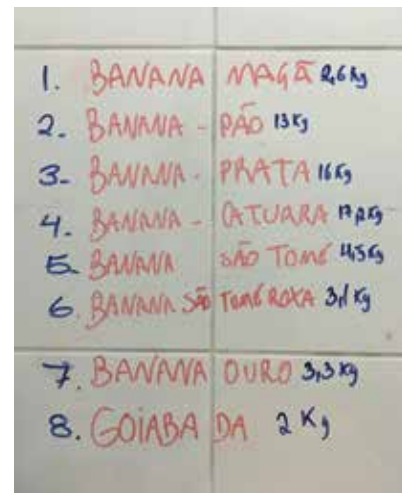 1. BANANA MAÇÃ 2,6 Kg
2. BANANA - PÃO 13 Kg
3- BANANA - PRATA 16 Kg
4. BANANA - CATUARA 17,2 Kg
5. BANANA SÃO TOMÉ 4,5 Kg
6 BANANA SÃO TOMÉ ROXA 3,1 Kg
7. BANANA OURO 3,3 Kg
8. GOIABA DA 2 Kg